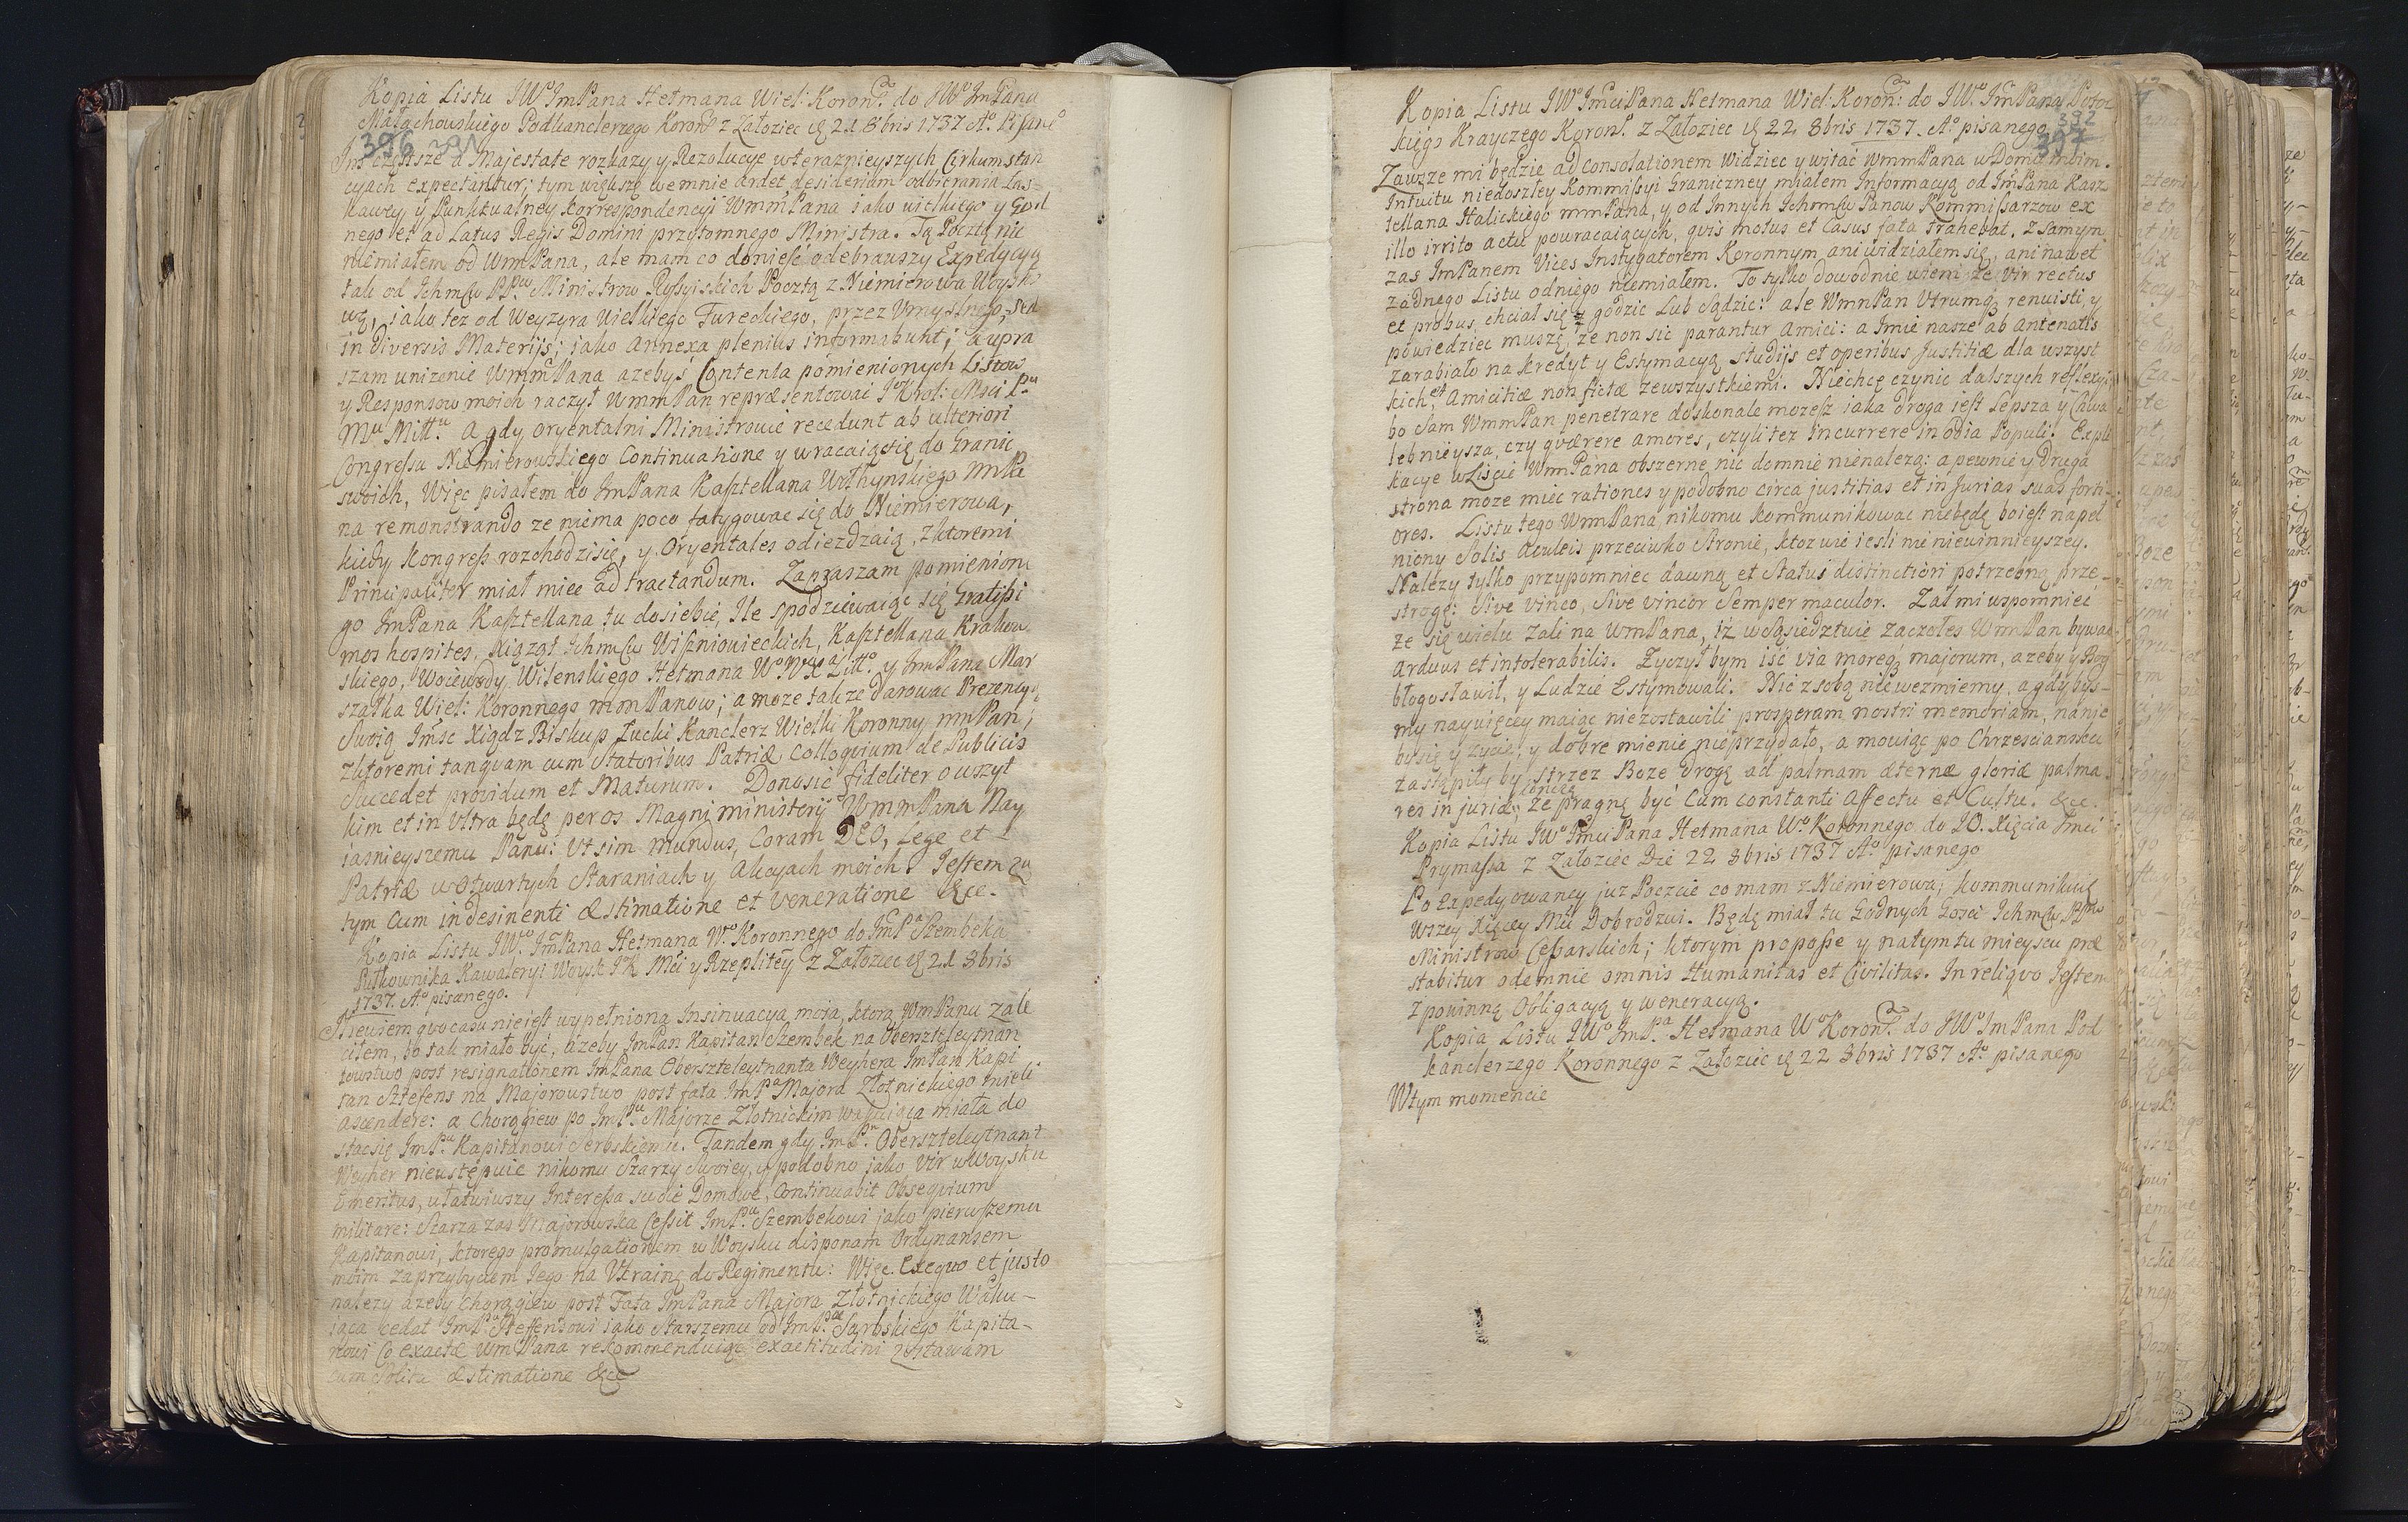 Kopia Listu JWo ImPana Hetmana Wiel: Koronn: do JWo ImPana
Małachowskiego Podkanclerzego Koron: z Załoziec d 21 8bris 1737 Ao. Pisane
396 391
Im częstsze a Majestate rozkazy y Rezolucye w teraznieyszych Cirkumstan
cyach expectantur; tym większe we mnie ardet desiderium odbierania Łas
kawey y Punktualney korrespondencyi WmmPana jako wielkiego y God
nego et ad Latus Regis Domini przytomnego Ministra. Tą Pocztą nic
niemiałem od WmPana, ale mam co donieść odebrawszy Expedycyą
tak od Ichmciw PPow Ministrow Rossyiskich Pocztą z Niemierowa Woysko
wą, iako tez od Wezyra Wielkiego Tureckiego, przez Umyslnego, sed
in diversis Materijs; jako Annexa plenius informabunt; a upra
szam unizenie WmmPana azebyś Contenta pomienionych Listow
y Responsow moich raczył WmmPan repræsentować JKrol: Msci Pu
Mu Mitt:u A gdy oryentalni Ministrowie recedunt ab ulteriori
Congressu Niemierowskiego Continuatione y wracaią się do Granic
swoich, Więc pisałem do ImPana Kasztellana Wołhynskiego MmPa
na remonstrando ze niema poco fatygowac się do Niemierowa,
kiedy Kongress rozchodzi się, y Oryentales odiezdzaią, z ktoremi
Principaliter miał miec ad tractandum. Zapraszam pomienione
go ImPana Kasztellana tu do siebie, Ile spodziewaiąc się Gratissi
mos hospites, Xiążąt Ichmciw Wiszniowieckich, Kasztellana Krakow
skiego, Woiewody Wilenskiego Hetmana Wo WXLitto. y ImPana Mar
szałka Wiel: Koronnego mmPanow; a moze takze darowac Prezency
Swoią Imśc Xiądz Biskup Łucki Kanclerz Wielki Koronny mmPan;
z ktoremi tanquam cum Statoribus Patriæ Colloquium de Publicis
Succedet providum et Maturum. Donosić fideliter o wszyt
kim et in Ultra będę per os Magni ministerij WmmPana Nay
iasnieyszemu Panu: Ut sim mundus, Coram DEO, Lege et
Patriæ w otwartych Staraniach y Akcyach moich. Jestem zu
tym cum indesinenti Æstimatione et Veneratione &cc.
Kopia Listu JWo. ImPana Hetmana Wo. Koronnego do ImPa Szembeka
Pułkownika Kawaleryi Woysk JK Mći y Rzeplitey z Załoziec d 21 8bris
1737. Ao pisanego.
Niewiem quo casu nie iest wypełniona Insinuacya moja, ktorą WmPanu zale
ciłem, bo tak miało być, azeby ImPan Kapitan Szembek na Oberszteleytnan
towstwo post resignationem ImPana Oberszteleytnanta Weyhera ImPan Kapi
tan Sztefens na Majorowstwo post fata ImPa Majora Złotnickiego mieli
ascendere: a Chorągiew po ImPu Majorze Złotnickim wakuiąca miała do
stac się ImPu Kapitanowi Serbskiemu. Tandem gdy ImPn Oberszteleytnant
Weyher nieustępuie nikomu Szarzy Swoiey, y podobno jako Vir w Woysku
Emeritus, ułatwiwszy Interessa swoie Domowe, Continuabit Obsequium
militare: Starza zas Majorowska Cessit ImPu Szembekowi jako pierwszemu
Kapitanowi, ktorego promulgationem w Woysku disponam Ordynansem
moim za przybyciem Jego na Ukrainę do Regimentu: Więc Exequo et justo
nalezy azeby Chorągiew post Fata ImPana Majora Złotnickiego Waku-
iąca cedat ImPu Steffensowi iako Starszemu od ImPa Sarbskiego Kapita-
nowi Co exactæ WmPana rekommenduiąc exactitudini zostawam
cum Solita Æstimatione &cc
Kopia Listu JWo ImciPana Hetmana Wiel: Koron: do JWo. ImPana Potoc
kiego Krayczego Koron: z Załoziec d 22 8bris 1737. Ao. pisanego
392
397
Zawsze mi będzie ad Consolationem widziec y witać WmmPana w Domu moim.
Intuitu niedoszłey Kommissyi Graniczney miałem Informacyą od ImPana Kasz
tellana Halickiego mmPana, y od Innych Ichmciw Panow Kommissarzow ex
illo irrito actu powracaiących, quis motus et Casus fata trahebat. Z samym
zas ImPanem Vices Instygatorem Koronnym ani widziałem się, ani nawet
zadnego Listu od niego niemiałem. To tylko dowodnie wiem ze Vir rectus
et probus, chciał się godzic Lub Sądzic: ale WmmPan Utrumq; renuisti, y
powiedziec muszę, ze non sic parantur Amici: a Imie nasze ab Antenatis
zarabiało na Kredyt y Estymacyą studijs et operibus Justitiæ dla wszyst
kich et Amicitiæ non fictæ ze wszystkiemi. Niechcę czynic dalszych reflexyi
bo Sam WmmPan penetrare doskonale mozesz iaka droga iest lepsza y Chwa
lebnieysza, czy quærere amores, czyli tez incurrere in odia Populi. Expli
kacye w Liscie WmPana obszerne, nic do mnie nienalezą: a pewnie y druga
strona moze miec rationes y podobno circa justitias et injurias suas forti-
ores. Listu tego WmmPana nikomu kommunikowac niebędę bo iest napeł
niony Solis Aculeis przeciwko Stronie, kto wie iesli nie niewinnieyszey.
Nalezy tylko przypomniec dawną et Statui distinctiori potrzebną prze-
strogę: Sive vinco, Sive vincor Semper maculor. Zal mi wspomnieć
ze się wielu zali na WmPana, iz w Sąsiedztwie zaczołes WmmPan bywac
arduus et intolerabilis. Zyczył bym iść via moreq; majorum, azeby y Bog
błogosławił, y Ludzie Estymowali. Nic z sobą nie wezmiemy, a gdybys-
my naywięcey maiąc niezostawili prosperam nostri memoriam, na nic
by się y zycie, y dobre mienie nieprzydało, a mowiąc po Chrzesciansku
zastąpiły by strzez Boze drogę ad palmam æternæ gloriæ palma
res injuriæ; Koncząc ze pragnę być Cum constanti Affectu et Cultu. &cc.
Kopia Listu JWo ImciPana Hetmana Wo. Koronnego do JO. Xięcia Jmci
Prymassa z Załoziec Die 22 8bris 1737 Ao. pisanego
Po Expedyowaney juz Poczcie co mam z Niemierowa; kommunikuię
Wszey Xięcey Mći Dobrodzwi. Będę miał tu Godnych Gosci Ichmciw PPow
Ministrow Cesarskich; ktorym propossse y na tym tu mieyscu præ
stabitur odemnie omnis Humanitas et Civilitas. In reliquo Jestem
z powinną Obligacyą y weneracyą.
Kopia Listu JWo ImPa Hetmana Wo Koron: do JWo ImPana Pod
kanclerzego Koronnego z Załoziec d 22 8bris 1737 Ao. pisanego
W tym momencie